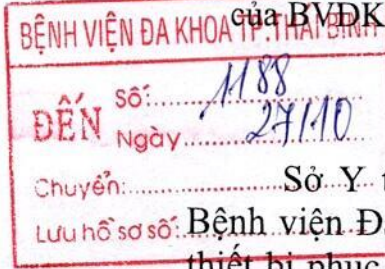 của BVĐK
BỆNH VIỆN ĐA KHOA TP.THÁI BÌNH
ĐẾN Số: 1188
Ngày 27/10
Chuyển: Sở Y t
Lưu hồ sơ số: Bệnh viện Đ
thiết bị phục